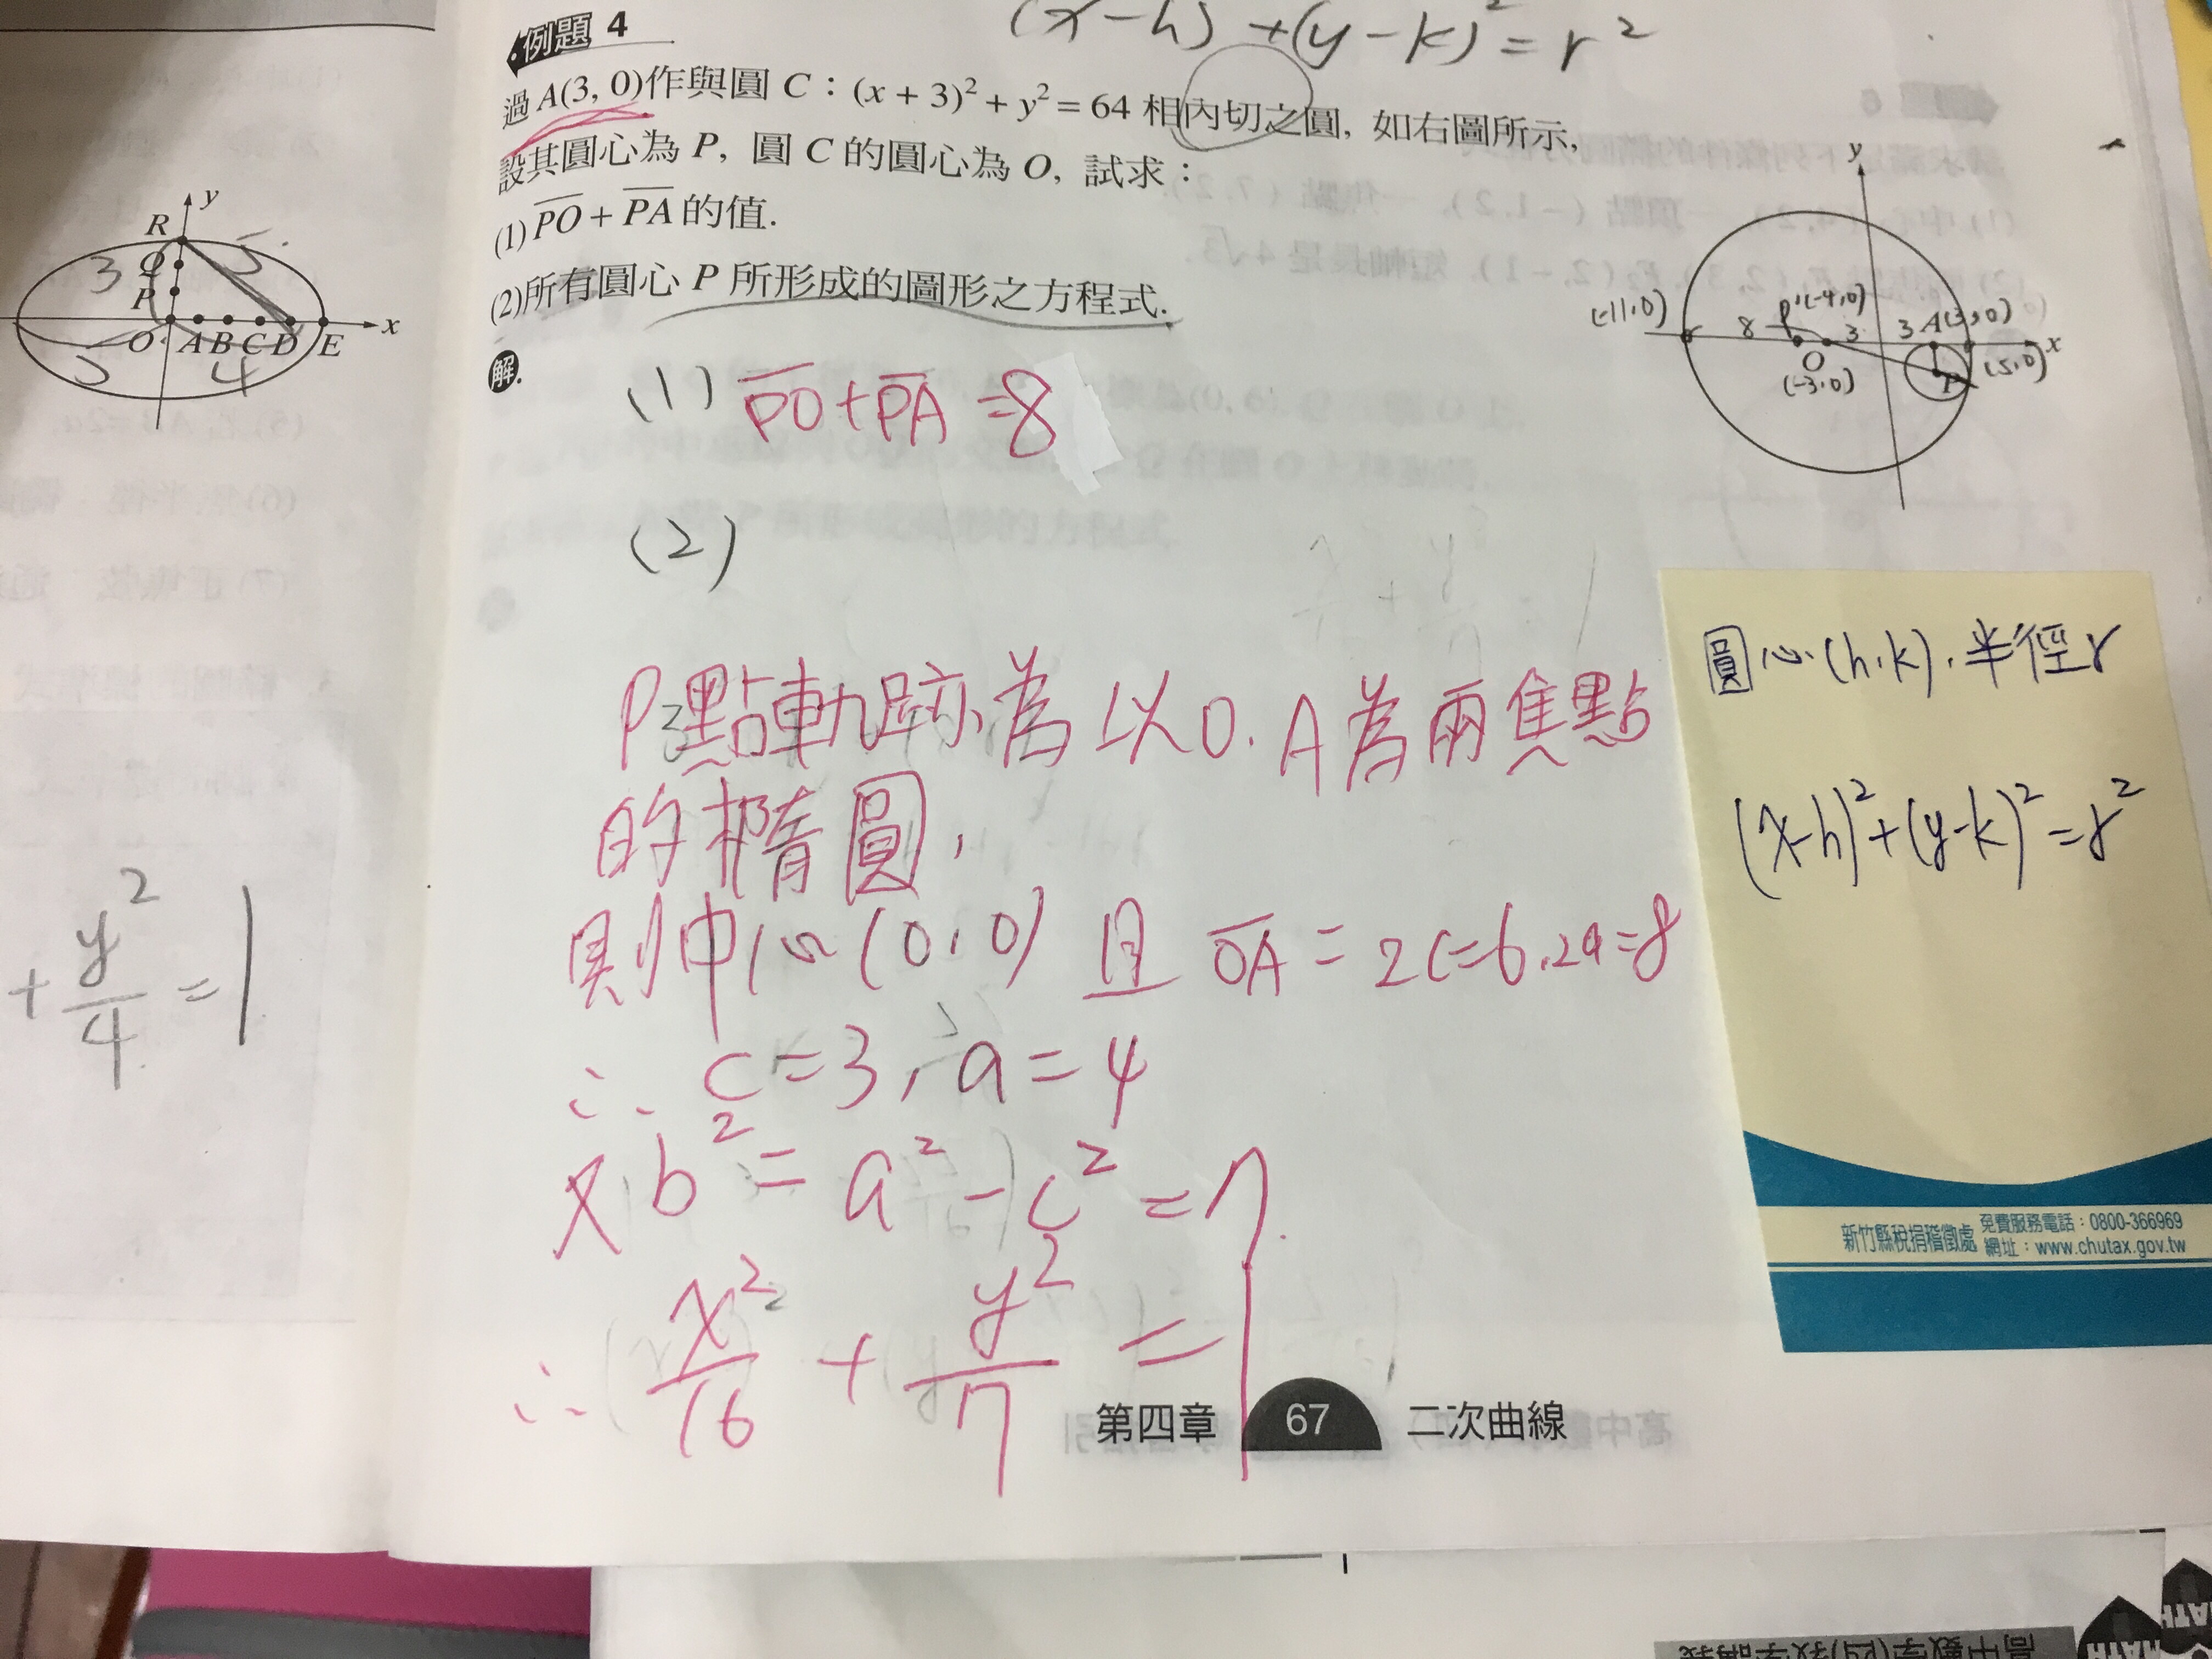 例題 4
(x-h) +(y-k)² = r²
過 A(3, 0)作與圓 C：(x + 3)² + y² = 64 相內切之圓, 如右圖所示,
設其圓心為 P, 圓 C 的圓心為 O, 試求：
(1) PO + PA 的值.
(2)所有圓心 P 所形成的圖形之方程式.
解.
(1) PO+PA=8
(2)
P點軌跡為以O.A為兩焦點
的橢圓,
則中心(0,0) 且 OA = 2c=6.2a=8
∴ c=3, a=4
又 b² = a² - c² = 7
∴ x²/16 + y²/7 = 1
第四章 67 二次曲線
y
R
3
5
Q
P
O A B C D E
x
5
4
+ y²/4 = 1
y
(-11,0)
8
P'(-4,0)
3
3
A(3,0)
x
O
(-3,0)
P
(5,0)
圓心(h,k),半徑r
(x-h)²+(y-k)²=r²
新竹縣稅捐稽徵處
免費服務電話：0800-366969
網址：www.chutax.gov.tw
高中數學(四)教學講義
MATH
MATH